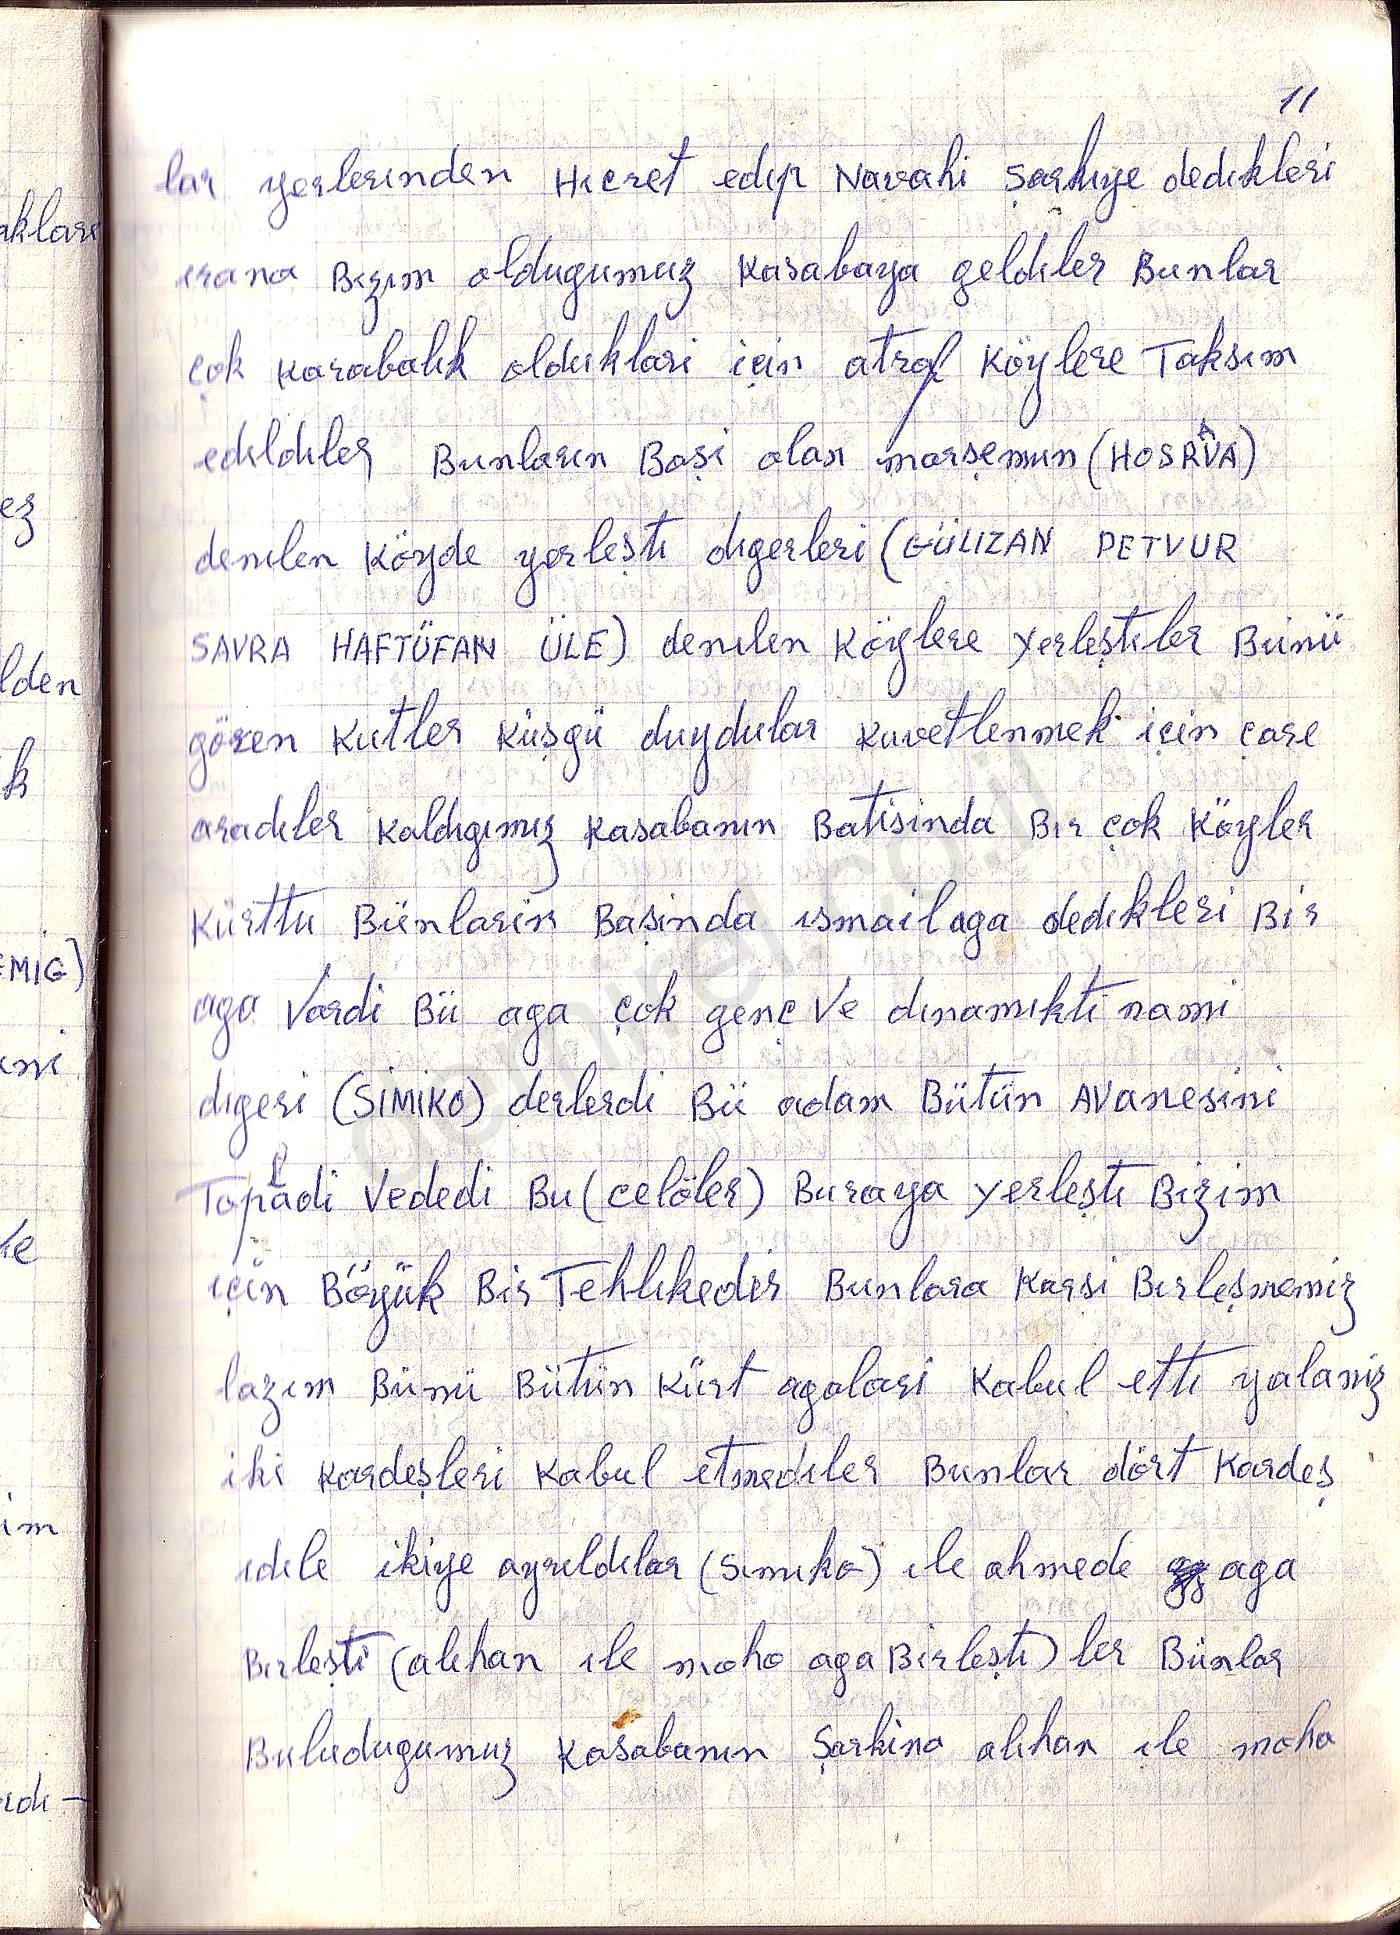 11
lar yerlerınden Hıcret edıp Navahi Şarkıye dedıkleri
ırana Bızım oldugumuz kasabaya geldıler Bunlar
çok karabalık oldukları için atraf köylere Taksım
edıldıler Bunların Başi olan marşemun (HOSRAVA)
denılen köyde yerleştı dıgerleri (GÜLIZAN PETVUR
SAVRA HAFTÜFAN ÜLE) denılen köylere yerleştıler Bünü
gören Kutler küşgü duydular kuvetlenmek için çare
aradıler kaldıgımız kasabanın Batisinda Bır çok köyler
kürttu Bünların Başinda ısmail aga dedıkleri Bir
aga Vardi Bü aga çok genç Ve dınamıkti nami
dıgeri (SİMİKO) derlerdi Bü adam Bütün AVanesini
Topladi Vededi Bu (celöler) Buraya yerleştı Bizim
için Böyük Bir Tehlıkedir Bunlara karşi Bırleşmemiz
lazım Bünü Bütün kürt agalari kabul ettı yalanız
iki kardeşleri kabul etmedıler Bunlar dört kardeş
ıdıle ikiye ayrıldılar (sımıko) ıle ahmede aga
Bırleşti (alıhan ıle moho aga Birleştı) ler Bünlar
Buludugumuz kasabanın Şarkina alıhan ıle moho
aklara
ez
lden
k
EMİG)
ni
le
im
ıdı-
demirel.co.il